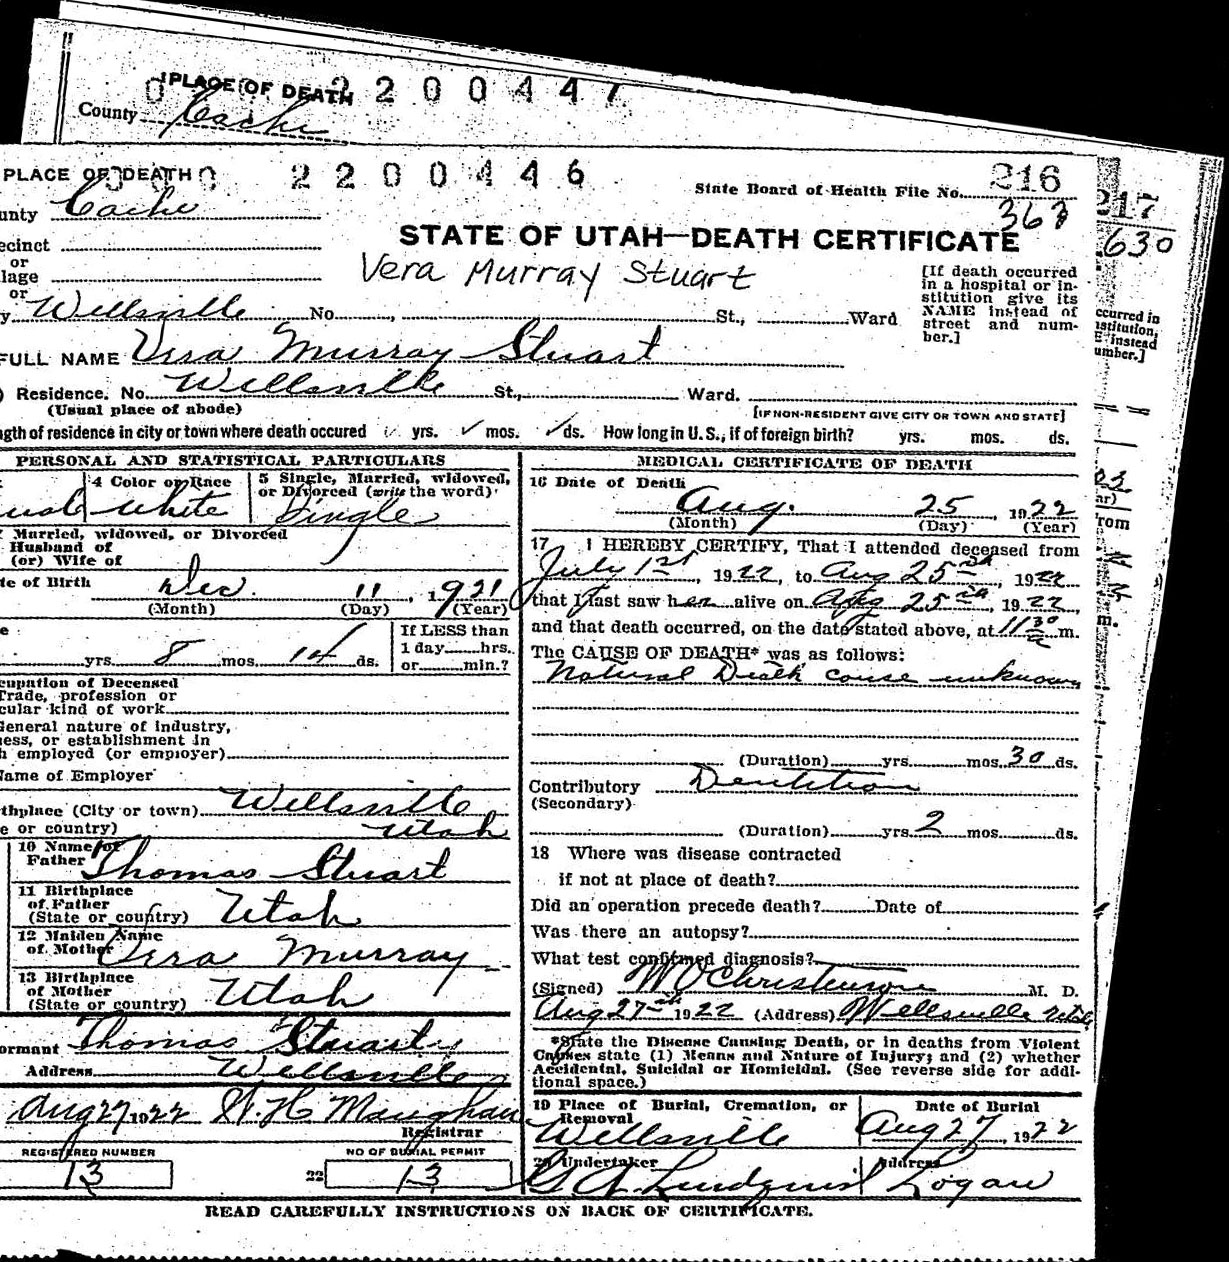 PLACE OF DEATH
2 2 0 0 4 4 7
County Cache
PLACE OF DEATH
2 2 0 0 4 4 6
State Board of Health File No. 216
217
unty Cache
363
630
ecinct
STATE OF UTAH—DEATH CERTIFICATE
or
lage
Vera Murray Stuart
[If death occurred in a hospital or institution give its NAME instead of street and number.]
or
y Wellsville No. St., Ward
ccurred in
stitution,
E instead
umber.]
FULL NAME Vera Murray Stuart
) Residence. No. Wellsville St., Ward.
(Usual place of abode)
[IF NON-RESIDENT GIVE CITY OR TOWN AND STATE]
ngth of residence in city or town where death occured ✓ yrs. ✓ mos. ✓ ds. How long in U. S., if of foreign birth? yrs. mos. ds.
PERSONAL AND STATISTICAL PARTICULARS
4 Color or Race
5 Single, Married, widowed, or Divorced (write the word)
White
Single
Married, widowed, or Divorced
Husband of
(or) Wife of
te of Birth Dec. 11, 1921
(Month) (Day) (Year)
e
yrs. 8 mos. 14 ds.
If LESS than
1 day hrs.
or min.?
cupation of Deceased
Trade, profession or
cular kind of work
General nature of industry,
ness, or establishment in
h employed (or employer)
Name of Employer
thplace (City or town) Wellsville
e or country) Utah
10 Name of Father Thomas Stuart
11 Birthplace of Father (State or country) Utah
12 Maiden Name of Mother Vera Murray
13 Birthplace of Mother (State or country) Utah
ormant Thomas Stuart
Address Wellsville
Aug 27 1922 W. H. Maughan
Registrar
REGISTERED NUMBER
13
NO OF BURIAL PERMIT
22 13
MEDICAL CERTIFICATE OF DEATH
16 Date of Death
Aug. 25, 1922
(Month) (Day) (Year)
17 I HEREBY CERTIFY, That I attended deceased from
July 1st, 1922, to Aug 25th, 1922
that I last saw her alive on Aug 25th, 1922,
and that death occurred, on the date stated above, at 11 30 a m.
The CAUSE OF DEATH* was as follows:
Natural Death cause unknown
(Duration) yrs. mos. 30 ds.
Contributory Dentition
(Secondary)
(Duration) yrs. 2 mos. ds.
18 Where was disease contracted
if not at place of death?
Did an operation precede death? Date of
Was there an autopsy?
What test confirmed diagnosis?
(Signed) W O Christenson M. D.
Aug 27th 1922 (Address) Wellsville Utah
*State the Disease Causing Death, or in deaths from Violent
Causes state (1) Means and Nature of Injury; and (2) whether
Accidental, Suicidal or Homicidal. (See reverse side for addi-
tional space.)
19 Place of Burial, Cremation, or Removal
Wellsville
Date of Burial
Aug 27, 1922
20 Undertaker
G A Lundquist
Address
Logan
READ CAREFULLY INSTRUCTIONS ON BACK OF CERTIFICATE.